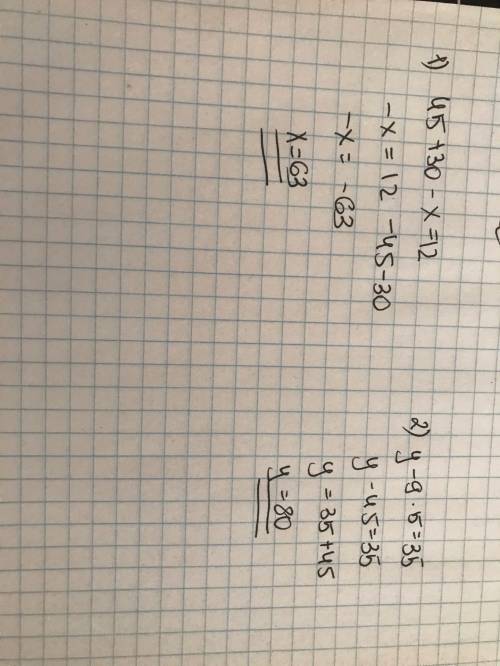 1) 45+30-x=12
-x = 12 -45-30
-x = -63
x=63
2) y-9·5=35
y-45=35
y = 35+45
y=80